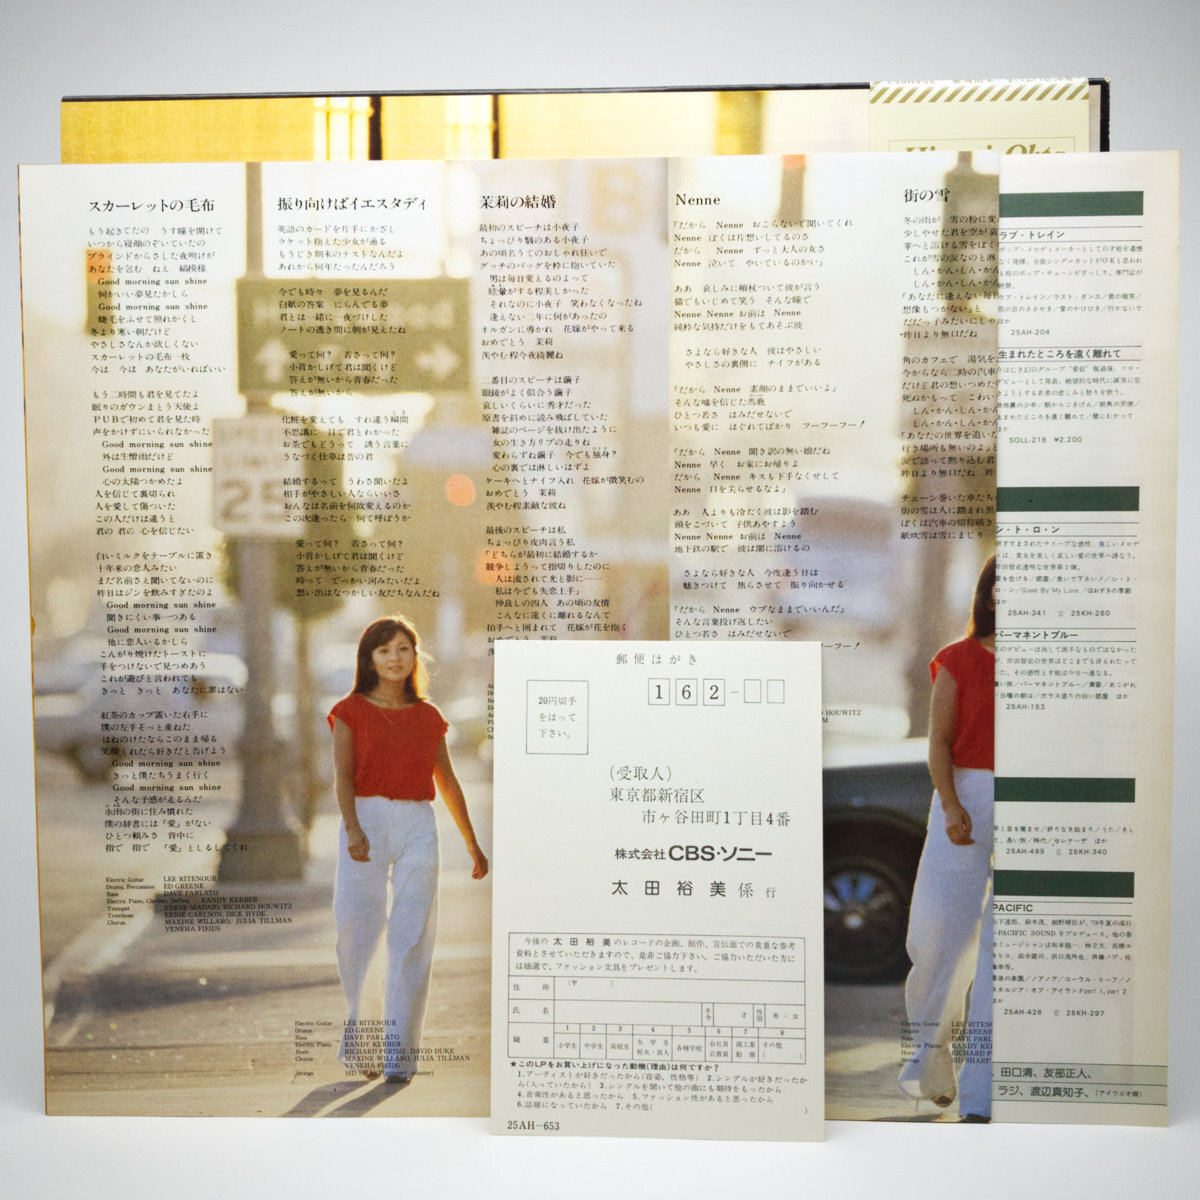 スカーレットの毛布
もう起きてたの　うす瞳を開けて
いつから寝顔のぞいていたの
ブラインドからさした夜明けが
あなたを包む　ねぇ　縞模様
Good morning sun shine
何かいい夢見たかしら
Good morning sun shine
睫毛をふせて照れかくし
冬より寒い朝だけど
やさしさなんか欲しくない
スカーレットの毛布一枚
今は　今は　あなたがいればいい
もう二時間も君を見てたよ
眠りのガウンまとう天使よ
PUBで初めて君を見た時
声をかけずにいられなかった
Good morning sun shine
外は生憎雨だけど
Good morning sun shine
心の太陽つかめたよ
人を信じて裏切られ
人を愛して傷ついた
この人だけは違うと
君の 君の 心を信じたい
白いミルクをテーブルに置き
十年来の恋人みたい
まだ名前さえ聞いてないのに
昨日はジンを飲みすぎたのよ
Good morning sun shine
聞きにくい事一つある
Good morning sun shine
他に恋人いるかしら
こんがり焼けたトーストに
手をつけないで見つめあう
これが遊びと言われても
きっと　きっと　あなたに罪はない
紅茶のカップ置いた右手に
僕の左手そっと重ねた
はねのけたならこのまま帰る
笑顔くれたら好きだと告げよう
Good morning sun shine
きっと僕たちうまく行く
Good morning sun shine
そんな予感が走るんだ
氷雨の街に住み慣れた
僕の辞書には「愛」がない
ひとつ頼みさ　背中に
指で　指で　「愛」としるしてくれ
Electric Guitar LEE RITENOUR
Drums, Percussion ED GREENE
Bass DAVE PARLATO
RANDY KERBER
Trumpet STEVE MADAIO, RICHARD HOUWITZ
Trombone ERNIE CARLSON, DICK HYDE
Chorus MAXINE WILLARD, JULIA TILLMAN
VENEHA FIEIDS
振り向けばイエスタディ
英語のカードを片手にかざし
ラケット抱えた少女が通る
もうじき期末のテストなんだよ
あれから何年たったんだろう
今でも時々　夢を見るんだ
白紙の答案　にらんでる夢
君とは一緒に一夜づけした
ノートの透き間に朝が見えたね
愛って何？　若さって何？
小首かしげて君は聞くけど
答えが無いから青春だった
答えが無いから
化粧を変えても　すれ違う瞬間
不思議に一目で君とわかった
お茶でもどうって　誘う言葉に
うなづく仕草は昔の君
結婚するって　うわさ聞いたよ
相手がやさしい人ならいいさ
おんなは名前を何故変えるのか
この次逢ったら　何て呼ぼうか
愛って何？　若さって何？
小首かしげて君は聞くけど
答えが無いから青春だった
時って　でっかい河みたいだよ
想い出はなつかしい友だちなんだね
Electric Guitar LEE RITENOUR
Drums ED GREENE
Bass DAVE PARLATO
Electric Piano RANDY KERBER
Horn RICHARD PERISSI, DAVID DUKE
Chorus MAXINE WILLARO, JULIA TILLMAN
VENEHA FIEIDS
Strings SID SHARP(concert master)
茉莉の結婚
最初のスピーチは小夜子
ちょっぴり翳のある小夜子
あの頃名うてのおしゃれ狂いで
グッチのバッグを粋に抱いていた
男は毎日変えるのよって
眩暈がする程美しかった
それなのに小夜子　笑わなくなったね
逢えない二年に何があったの
オルガンに導かれ　花嫁がやって来る
おめでとう　茉莉
羨やむ程今夜綺麗ね
二番目のスピーチは繭子
眼鏡がよく似合う繭子
哀しいくらいに秀才だった
原書を斜めに読み飛ばしていた
雑誌のページを抜け出たように
女の生き方リブの走りね
変わらずね繭子　今でも独身？
心の裏では淋しいはずよ
ケーキへとナイフ入れ　花嫁が微笑むの
おめでとう　茉莉
羨やむ程素敵な彼ね
最後のスピーチは私
ちょっぴり皮肉言う私
「どちらが最初に結婚するか
競争しようって指切りしたのに
人は流されて光と影に……
私は今でも失恋上手」
仲良しの四人　あの頃の友情
こんなに遠くに離れるなんて
拍手へと囲まれて　花嫁が花を抱く
Nenne
「だから　Nenne　おこらないで聞いてくれ
Nenne　ぼくは片想いしてるのさ
だから　Nenne　ずっと大人の女さ
Nenne　泣いて　やいているのかい」
ああ　哀しみに頬杖ついて彼が言う
猫でもいじめて笑う　そんな瞳で
Nenne Nenne お前は Nenne
純粋な気持だけをもてあそぶ彼
さよなら好きな人　彼はやさしい
やさしさの裏側に　ナイフがある
「だから　Nenne　素顔のままでいいよ」
そんな嘘を信じた馬鹿
ひとつ若さ　はみだせないで
いつも愛に　はぐれてばかり　フーフーフー！
「だから　Nenne　聞き訳の無い娘だね
Nenne　早く　お家にお帰りよ
だから　Nenne キスも下手なくせして
Nenne　口を尖らせるなよ」
ああ　人よりも冷たく彼は影を踏む
頭をこづいて　子供あやすよう
Nenne Nenne お前は　Nenne
地下鉄の駅で　彼は闇に溶けるの
さよなら好きな人　今度逢う日は
魅きつけて　焦らさせて　振り向かせる
「だから　Nenne　ウブなままでいいんだ」
そんな言葉投げ返したい
ひとつ若さ　はみだせないで
フーフーフー！
街の雪
冬の雨が　雪の粉に変
少しやせた君を空が哀
掌へと溶ける雪をぼく
これが雪の涙なのと淋
しん・かん・しん・か
しん・かん・しん・か
「あなたに逢えない毎日
想像もつかない」と
だだっ子みたいにしゃ
昨日より無口だね
角のカフェで　湯気を
今からなら二時の汽車
だけど君の想いつめた
死ぬかもって　こわい
しん・かん・しん・か
しん・かん・しん・か
「あなたの世界を追いた
行き場所も無いのよ」と
涙で語って黙り込む君
昨日より無口だね　昨
チェーン巻いた車たち
街の雪は人に踏まれ黒
ぼくは汽車の切符破き
紙吹雪は雪にまじり
Electric Guitar
Drums
Bass
Electric Piano
Horn
Chorus
Strings
郵便はがき
20円切手
をはって
下さい。
162-
（受取人）
東京都新宿区
市ヶ谷田町1丁目4番
株式会社CBS・ソニー
太田裕美係 行
今後の 太田裕美のレコードの企画、制作、宣伝面での貴重な参考
資料とさせていただきますので、是非ご協力下さい。ご協力いただいた方に
は抽選で、ファッション文具をプレゼントします。
住所 （〒　）
氏名 年令 才 性別 男・女
職業 1 小学生 2 中学生 3 高校生 4 大学生 短大・法人 5 各種学校 6 会社員 公務員 7 商工業 勤務 8 その他（　）
★このLPをお買い上げになった動機(理由)は何ですか？
1.アーティストが好きだったから(容姿、性格等)　2.シングルが好きだったか
ら(入っていたから)　3.シングルを聞いて他の曲にも期待をもったから
4.音楽性があると思ったから　5.ファッション性があると思ったから
6.話題になっていたから　7.その他(　)
25AH-653
ラブ・トレイン
25AH-204
生まれたところを遠く離れて
SOLL-216　¥2,200
シ・ト・ロ・ン
25AH-341　25KH-260
パーマネントブルー
25AH-153
25AH-499　25KH-340
PACIFIC
25AH-426　25KH-297
、田口清、友部正人、
ラジ、渡辺真知子、（アイウエオ順）
25